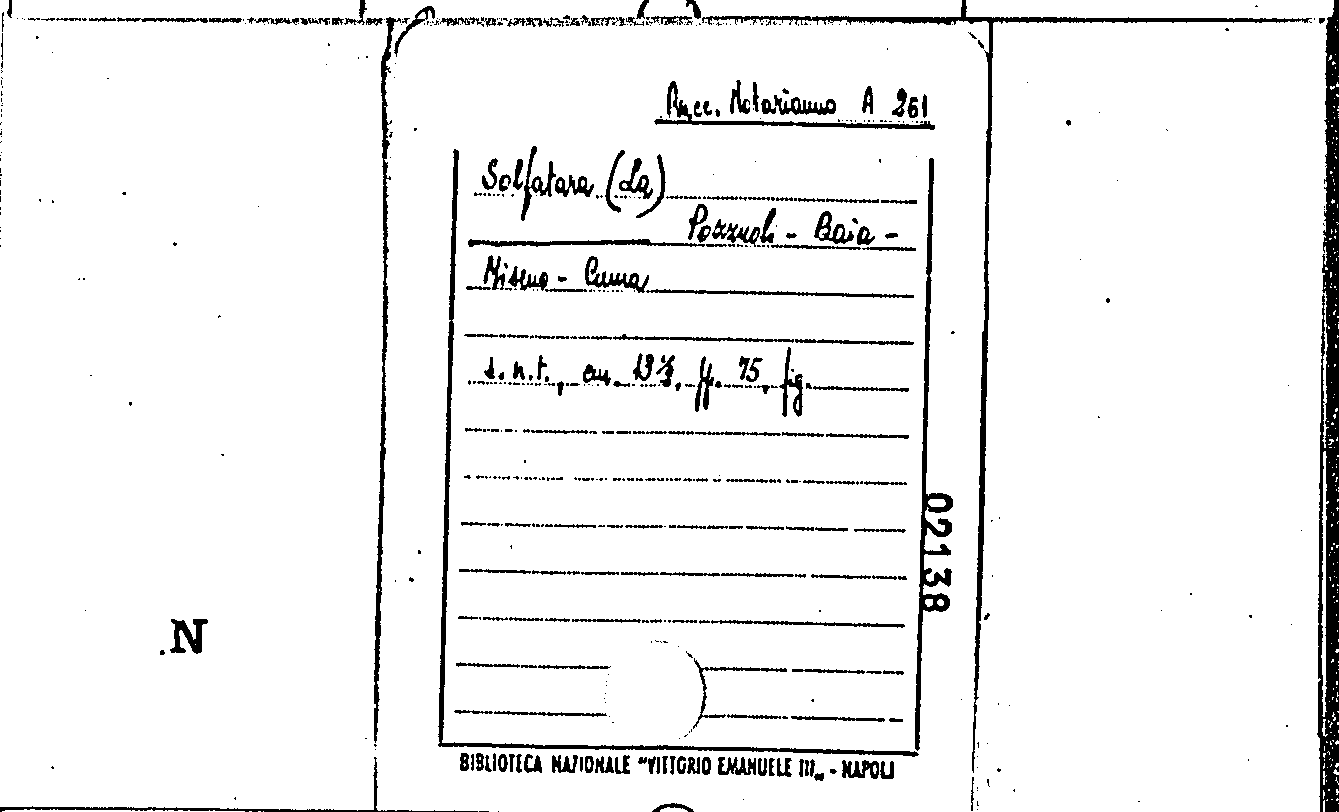 Racc. Notarianno A 261
Solfatara (La)
Pozzuoli - Baia -
Miseno - Cuma
s.n.t., cm. 13½, ff. 75, fig.
02138
N
BIBLIOTECA NAZIONALE "VITTORIO EMANUELE III„ - NAPOLI